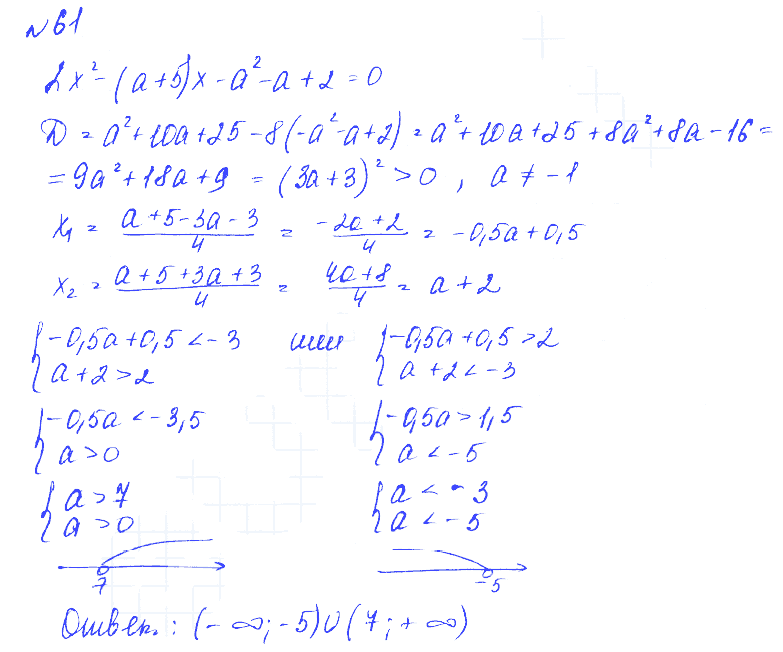 №61
2x² - (a+5)x - a² - a + 2 = 0
D = a² + 10a + 25 - 8(-a² - a + 2) = a² + 10a + 25 + 8a² + 8a - 16 =
= 9a² + 18a + 9 = (3a+3)² > 0 , a ≠ -1
x₁ = (a + 5 - 3a - 3)/4 = (-2a + 2)/4 = -0,5a + 0,5
x₂ = (a + 5 + 3a + 3)/4 = (4a + 8)/4 = a + 2
{ -0,5a + 0,5 < -3 или { -0,5a + 0,5 > 2
a + 2 > 2 a + 2 < -3
{ -0,5a < -3,5 { -0,5a > 1,5
a > 0 a < -5
{ a > 7 { a < -3
a > 0 a < -5
7 -5
Ответ. : (-∞; -5) ∪ (7; +∞)